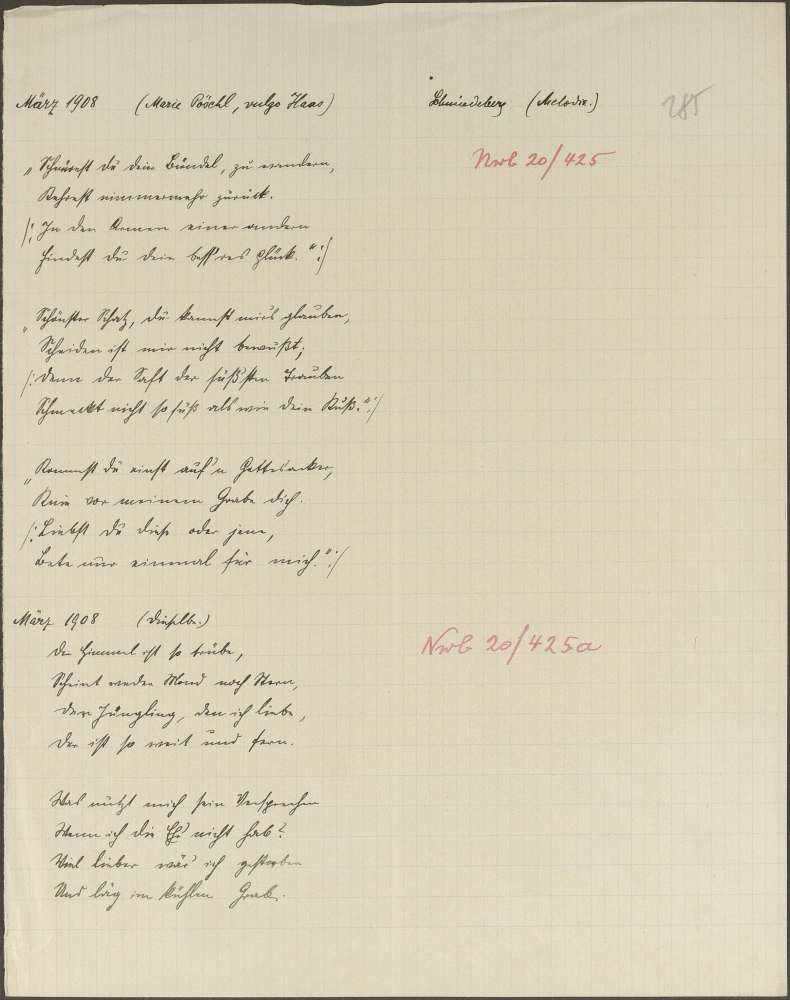 März 1908 (Marie Pöschl, vulgo Haas) Schmiedeberg (Melodie.) 285
Nwb 20/425
„Schnürest du dein Bündel, zu wandern,
Kehrest nimmermehr zurück.
/: In den Armen einer andern
Findest du dein bess'res Glück.“ :/
„Schönster Schatz, du kannst mirs glauben,
Scheiden ist mir nicht bewußt;
/: Denn der Saft der süß'sten Trauben
Schmeckt nicht so süß als wie dein Kuß.“ :/
„Kommst du einst auf'n Gottesacker,
Knie vor meinem Grabe dich.
/: Liebst du diese oder jene,
Bete nur einmal für mich.“ :/
März 1908 (Dieselbe.)
Nwb 20/425a
Der Himmel ist so trübe,
Scheint weder Mond noch Stern,
Der Jüngling, den ich liebe,
Der ist so weit und fern.
Was nützt mich sein Versprechen
Wenn ich die Eh' nicht hab'?
Viel lieber wär' ich gestorben
Und läg im kühlen Grab.